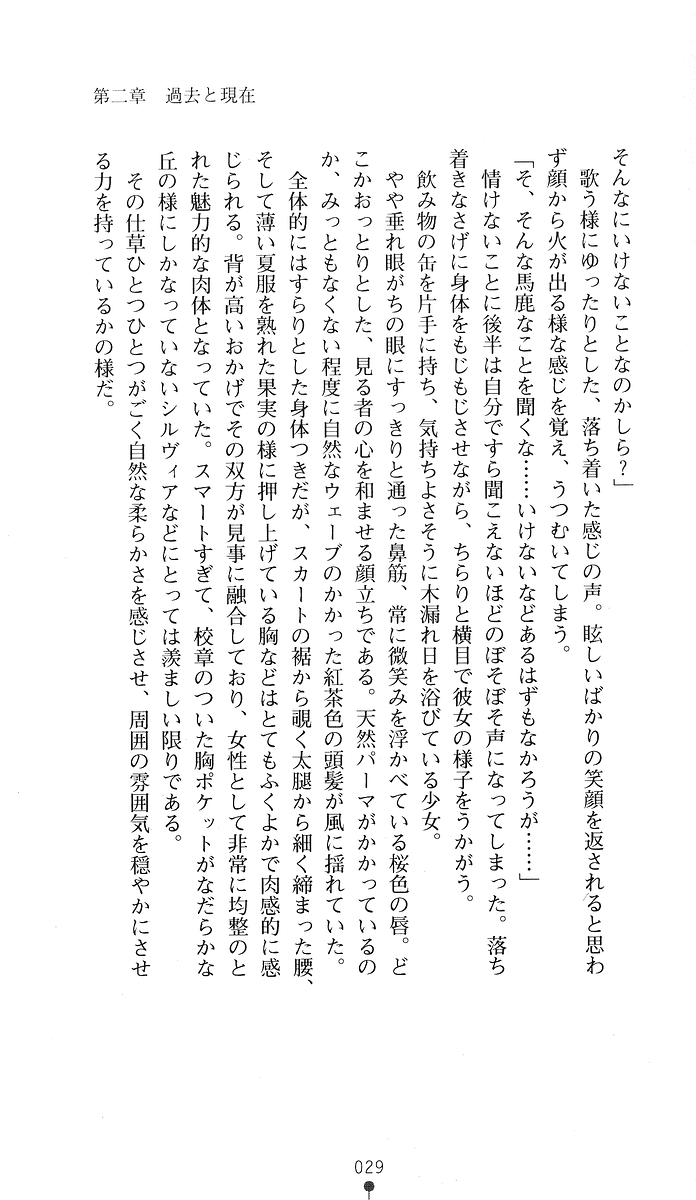 第二章　過去と現在
そんなにいけないことなのかしら？」
歌う様にゆったりとした、落ち着いた感じの声。眩しいばかりの笑顔を返されると思わ
ず顔から火が出る様な感じを覚え、うつむいてしまう。
「そ、そんな馬鹿なことを聞くな……いけないなどあるはずもなかろうが……」
情けないことに後半は自分ですら聞こえないほどのぼそぼそ声になってしまった。落ち
着きなさげに身体をもじもじさせながら、ちらりと横目で彼女の様子をうかがう。
飲み物の缶を片手に持ち、気持ちよさそうに木漏れ日を浴びている少女。
やや垂れ眼がちの眼にすっきりと通った鼻筋、常に微笑みを浮かべている桜色の唇。ど
こかおっとりとした、見る者の心を和ませる顔立ちである。天然パーマがかかっているの
か、みっともなくない程度に自然なウェーブのかかった紅茶色の頭髪が風に揺れていた。
全体的にはすらりとした身体つきだが、スカートの裾から覗く太腿から細く締まった腰、
そして薄い夏服を熟れた果実の様に押し上げている胸などはとてもふくよかで肉感的に感
じられる。背が高いおかげでその双方が見事に融合しており、女性として非常に均整のと
れた魅力的な肉体となっていた。スマートすぎて、校章のついた胸ポケットがなだらかな
丘の様にしかなっていないシルヴィアなどにとっては羨ましい限りである。
その仕草ひとつひとつがごく自然な柔らかさを感じさせ、周囲の雰囲気を穏やかにさせ
る力を持っているかの様だ。
029